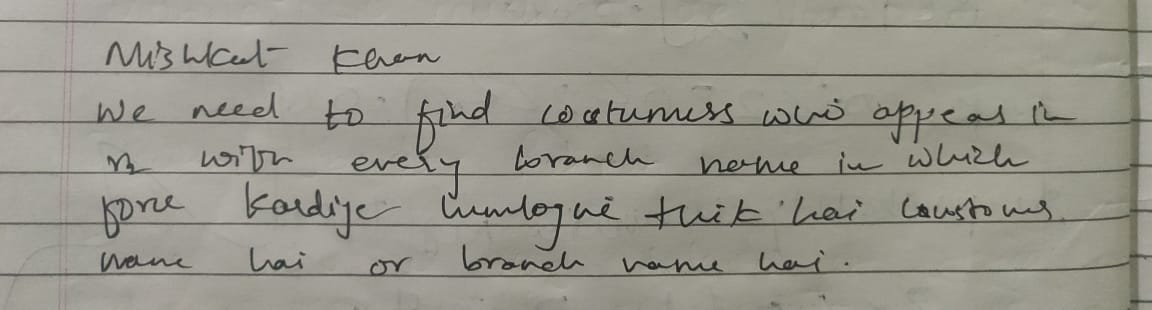 Mishkat Khan
We need to find coustumers who appears in
r2 with every branch name in which
kardiye humlogne thik hai coustomer
name hai or branch name hai.